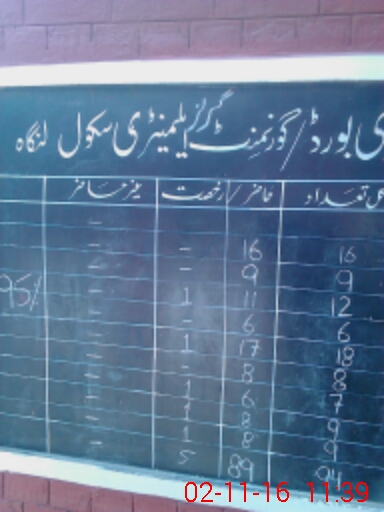 ی بورڈ/گورنمنٹ گرلز ایلیمنٹری سکول لنگاہ
تعداد حاضر/ رخصت غیر حاضر
16 16 - -
9 9 - -
12 11 1 - 95%
6 6 - -
18 17 1 -
8 8 - -
7 6 1 -
9 8 1 -
9 8 1 -
94 89 5
02-11-16 11:39